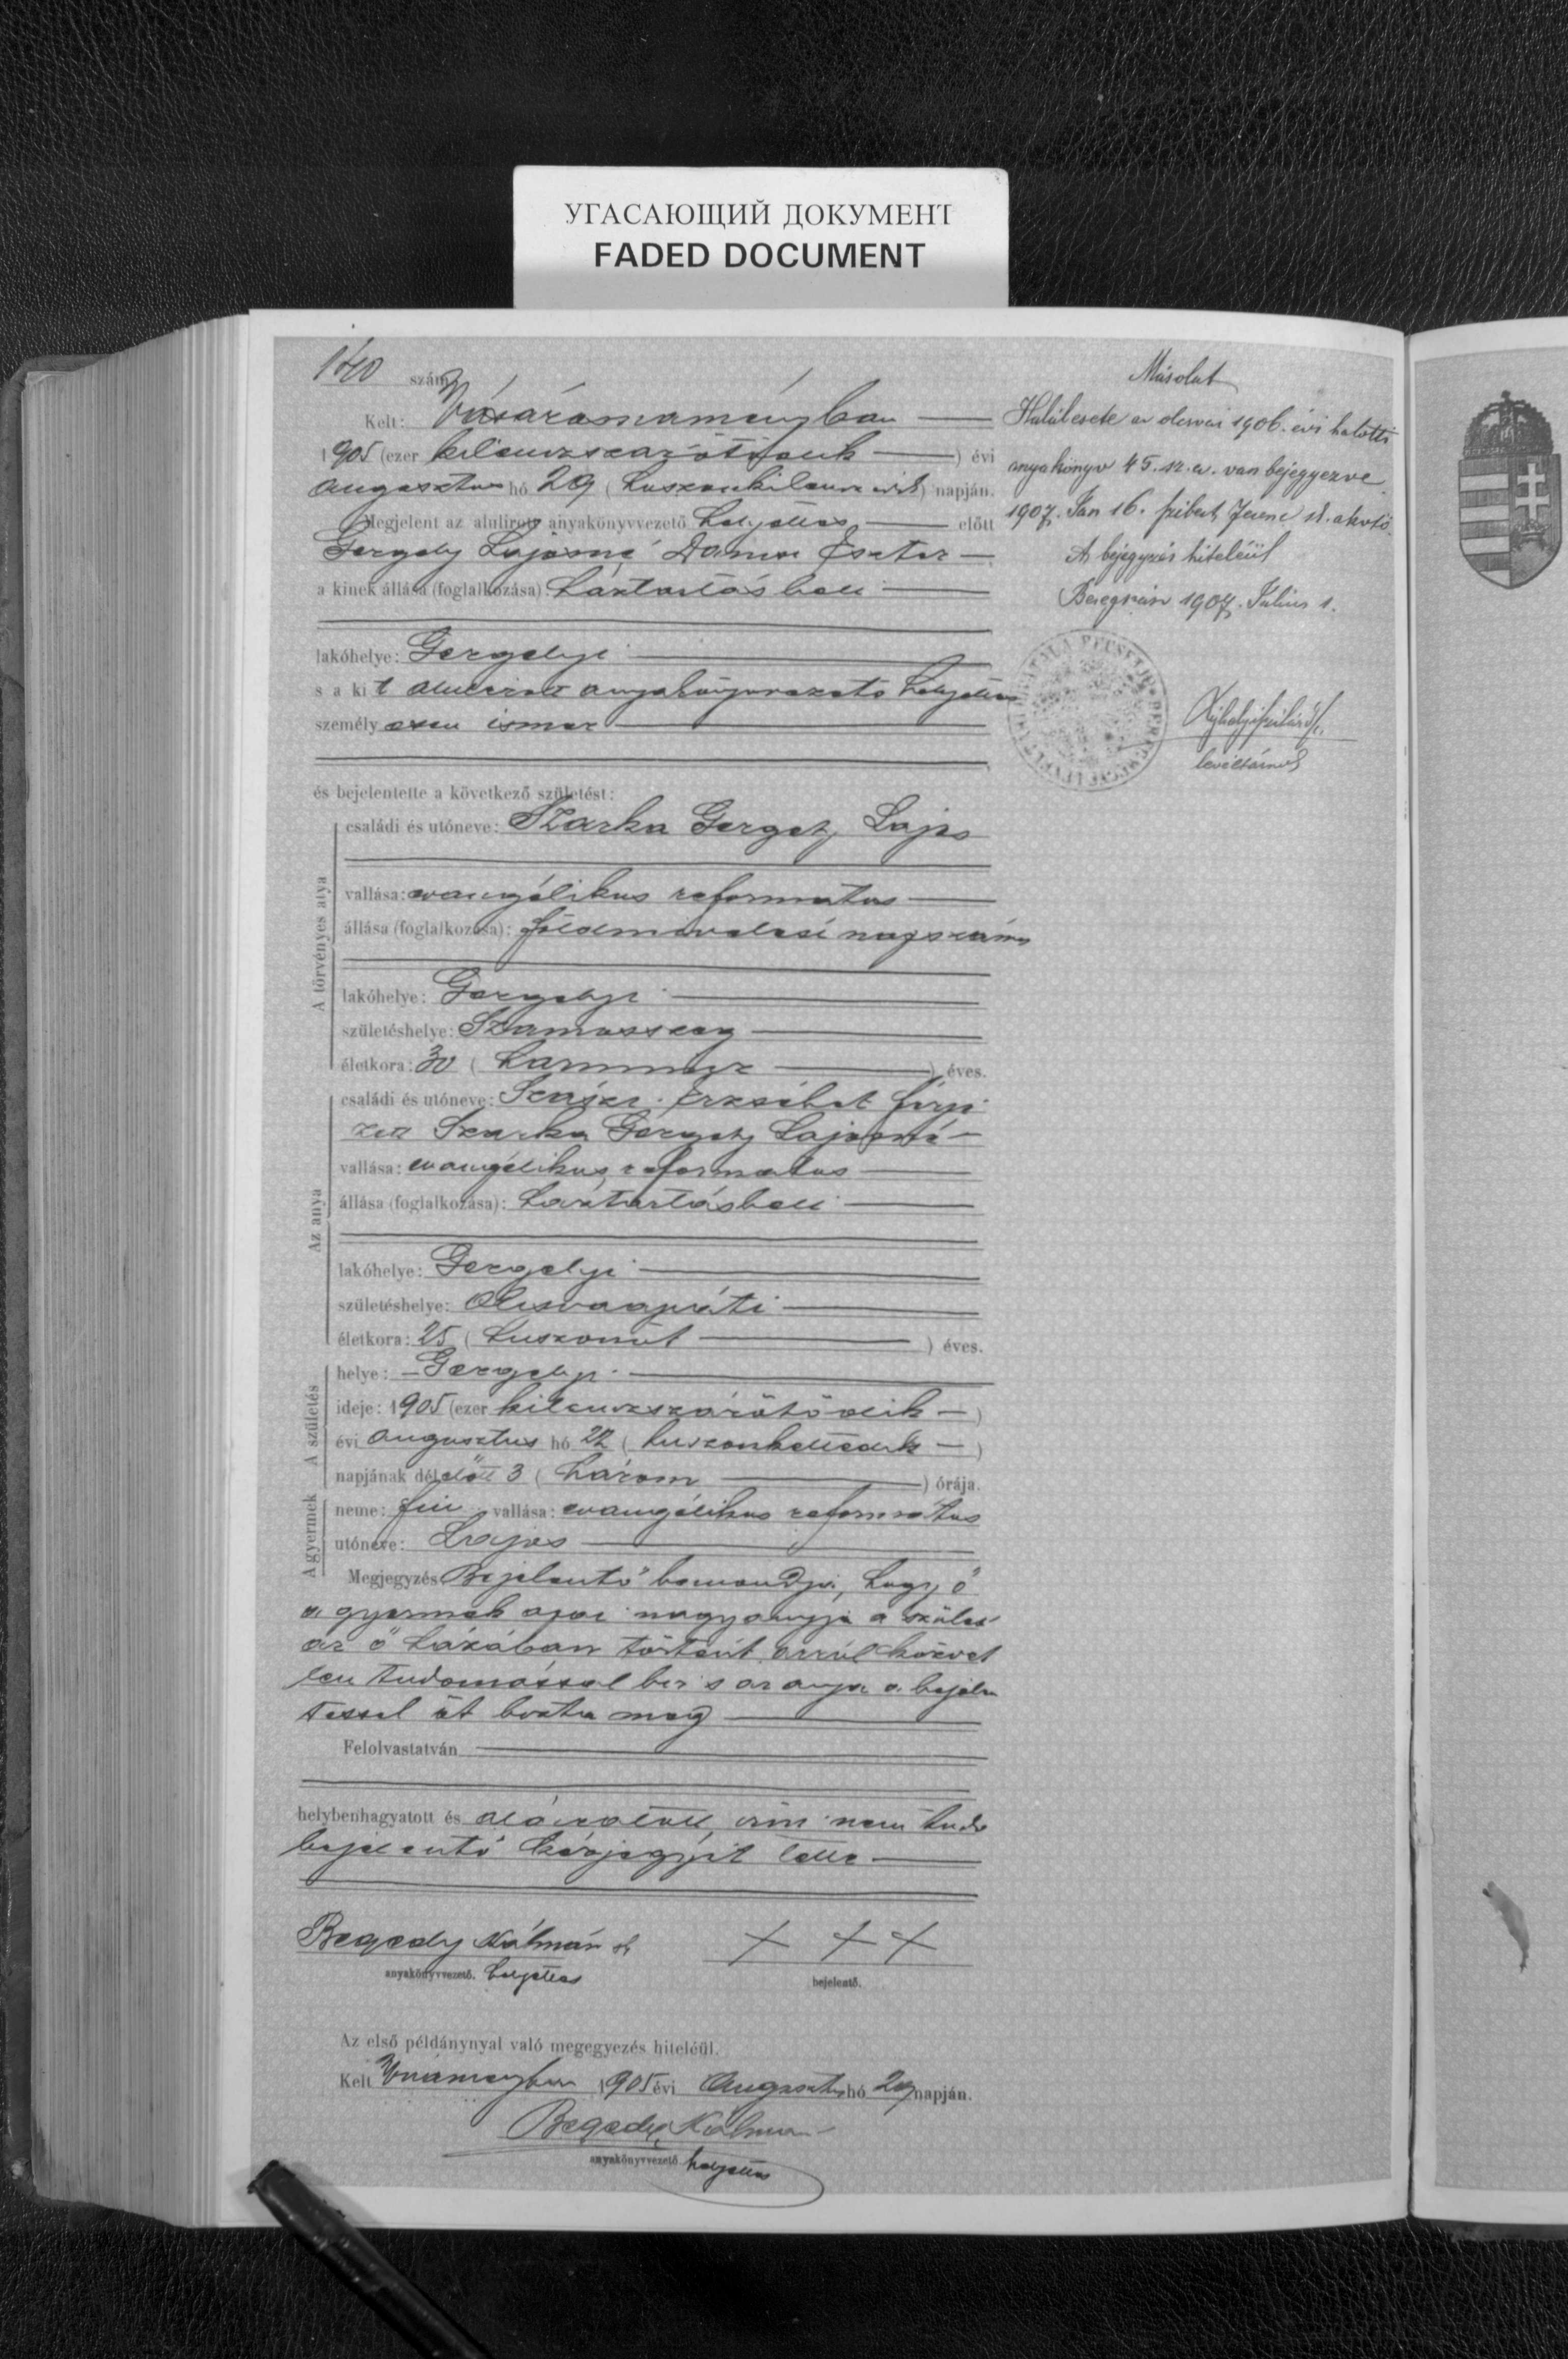 УГАСАЮЩИЙ ДОКУМЕНТ
FADED DOCUMENT
140 szám
Kelt: Vásárosnaményban
1905 (ezer kilenczszázötödik) évi
augusztus hó 29 (huszonkilenczedik) napján.
Megjelent az alulirott anyakönyvvezető helyettes előtt
Gergely Lajosné Dancs Eszter
a kinek állása (foglalkozása): háztartásbeli
lakóhelye: Gergelyi
s a kit alulirott anyakönyvvezető helyettes
személyesen ismer
és bejelentette a következő születést:
A törvényes atya
családi és utóneve: Szarka Gergely Lajos
vallása: evangélikus reformatus
állása (foglalkozása): földmivelési napszámos
lakóhelye: Gergelyi
születéshelye: Szamosszeg
életkora: 30 (harmincz) éves.
Az anya
családi és utóneve: Erzsébet férje
zett Szarka Gergely Lajosné
vallása: evangélikus reformatus
állása (foglalkozása): háztartásbeli
lakóhelye: Gergelyi
születéshelye: Olcsvaapáti
életkora: 25 (huszonöt) éves.
A születés
helye: Gergelyi
ideje: 1905 (ezer kilenczszázötödik)
évi augusztus hó 22 (huszonkettedik)
napjának délelőtt 3 (három) órája.
A gyermek
neme: fiú vallása: evangélikus református
utóneve: Lajos
Megjegyzés: Bejelentő bemondja, hogy ő
a gyermek apai nagyanyja a szülés
az ő házában történt, arról közvet
len tudomással bir s az anya a bejelen
téssel őt bízta meg
Felolvastatván
helybenhagyatott és aláiratott, irni nem tudó
bejelentő kézjegyét tette
Begedy Kálmán sk
+ + +
anyakönyvvezető. helyettes
bejelentő.
Az első példánynyal való megegyezés hiteléül.
Kelt Vnaményban 1905 évi Augusztus hó 29 napján.
Begedy Kálmán
anyakönyvvezető helyettes
Másolat
Halálesete az olcsvai 1906. évi halotti
anyakönyv 45. sz. a. van bejegyezve
1907. Jan 16. Ferenc
A bejegyzés hiteléül
Beregszász 1907. Július 1.
levéltárnok